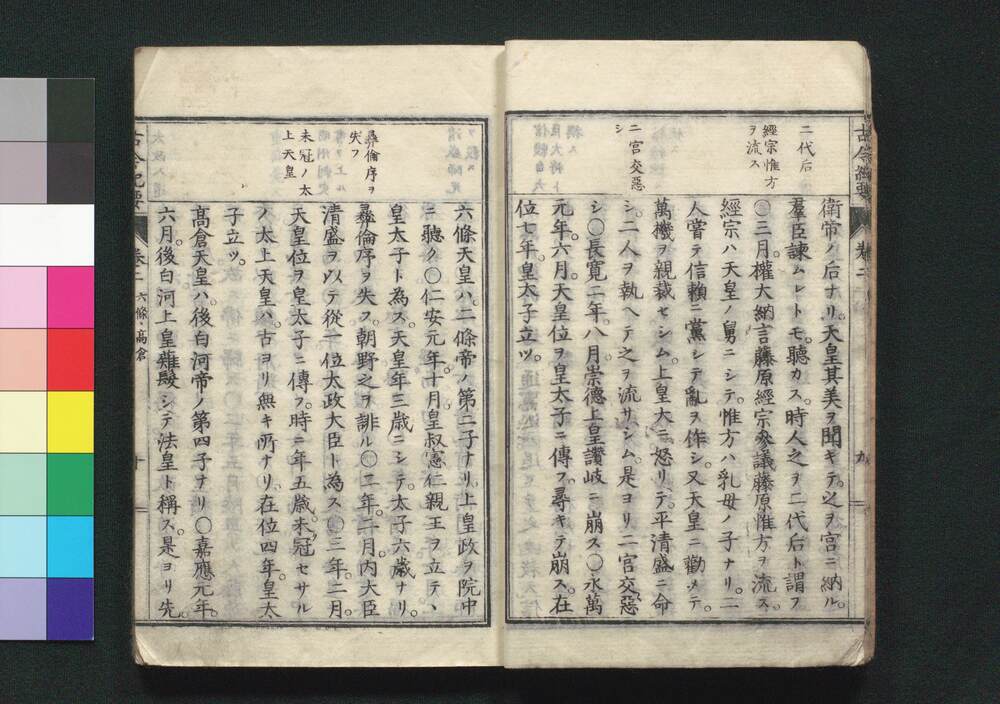 二代后
經宗惟方
ヲ流ス
二宮交惡
シ
衛帝ノ后ナリ。天皇其美ヲ聞キテ。之ヲ宮ニ納ル。
羣臣諫ムレトモ。聽カス。時人之ヲ二代后ト謂フ
〇三月。權大納言藤原經宗參議藤原惟方ヲ流ス。
經宗ハ天皇ノ舅ニシテ。惟方ハ乳母ノ子ナリ。二
人嘗テ信賴ニ黨シテ亂ヲ作シ。又天皇ニ勸メテ。
萬機ヲ親裁セシム。上皇大ニ怒リテ。平清盛ニ命
シ。二人ヲ執ヘテ之ヲ流サシム。是ヨリ二宮交惡
シ。〇長寬二年。八月。崇德上皇讚岐ニ崩ス。〇永萬
元年。六月。天皇位ヲ皇太子ニ傳フ。尋キテ崩ス。在
位七年。皇太子立ツ。
彝倫序ヲ
失フ
未冠ノ太
上天皇
六條天皇ハ。二條帝ノ第二子ナリ。上皇政ヲ院中
ニ聽ク。〇仁安元年。十月。皇叔憲仁親王ヲ立テヽ
皇太子ト為ス。天皇年三歳ニシテ。太子六歳ナリ。
彝倫序ヲ失フ。朝野之ヲ誹ル。〇二年。二月。内大臣
清盛ヲ以テ從一位太政大臣ト為ス。〇三年。二月。
天皇位ヲ皇太子ニ傳フ。時ニ年五歳。未冠セサル
ノ太上天皇ハ。古ヨリ無キ所ナリ。在位四年。皇太
子立ツ。
髙倉天皇ハ。後白河帝ノ第四子ナリ。〇嘉應元年。
六月。後白河上皇薙髮シテ法皇ト稱ス。是ヨリ先。
卷二
六條・高倉
十
卷二
九